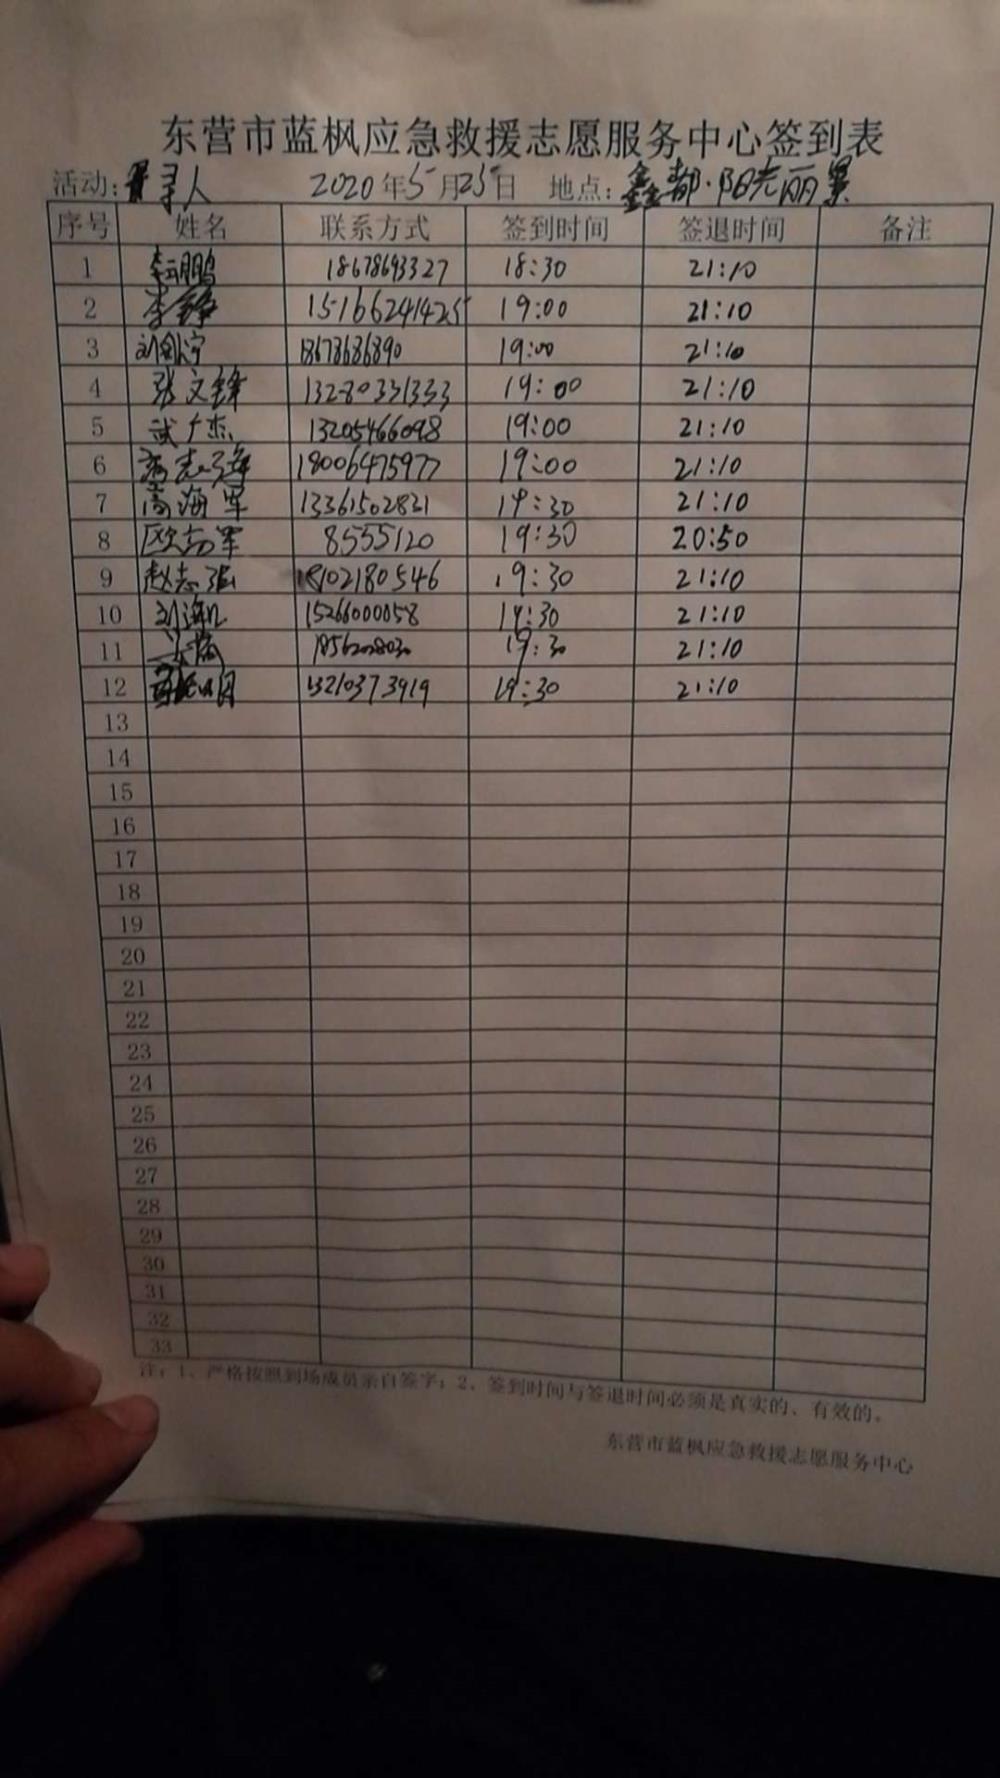 东营市蓝枫应急救援志愿服务中心签到表
活动: 寻人 2020年5月25日 地点: 鑫都·阳光丽景
序号 姓名 联系方式 签到时间 签退时间 备注
1 李云鹏 18678693327 18:30 21:10
2 李铮 15166241425 19:00 21:10
3 刘剑宁 18678686890 19:00 21:10
4 张文锋 13280331333 19:00 21:10
5 武广杰 13205466098 19:00 21:10
6 志强 18006475977 19:00 21:10
7 高海军 13361502831 19:30 21:10
8 欧志军 8555120 19:30 20:50
9 赵志强 18102180546 19:30 21:10
10 刘海 15266000058 19:30 21:10
11 19:30 21:10
12 13210373919 19:30 21:10
13
14
15
16
17
18
19
20
21
22
23
24
25
26
27
28
29
30
31
32
33
注：1、严格按照到场成员亲自签字；2、签到时间与签退时间必须是真实的、有效的。
东营市蓝枫应急救援志愿服务中心